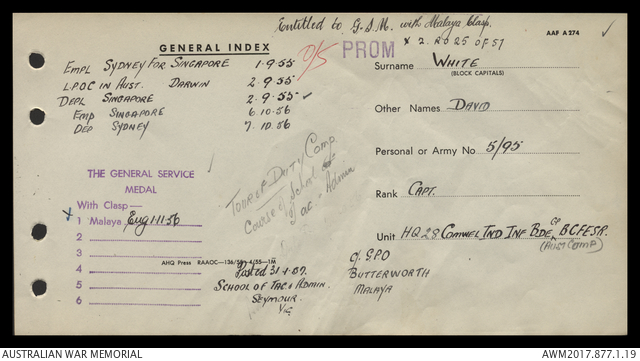 Entitled to G.S.M. with Malaya Clasp.
AAF A 274
GENERAL INDEX
O/S
PROM
* 2. RO 25 OF 57
EMPL SYDNEY FOR SINGAPORE 1-9-55
L.P.O.C IN AUST. DARWIN 2-9-55
DEPL SINGAPORE 2-9-55
EMP SINGAPORE 6.10.56
DEP SYDNEY 7.10.56
Surname WHITE
(BLOCK CAPITALS)
Other Names DAVID
Personal or Army No 5/95
Rank CAPT.
Unit HQ 28 COMWEL IND INF BDE GP BCFESR.
(AUST COMP)
C/ GPO
BUTTERWORTH
MALAYA
THE GENERAL SERVICE
MEDAL
With Clasp—
1 Malaya 1156
2
3
4
5
6
TOUR OF DUTY Comp.
Course of School
of Tac. Admin
AHQ Press RAAOC—
Posted 31-1-57.
SCHOOL OF TAC & ADMIN.
SEYMOUR
VIC
AUSTRALIAN WAR MEMORIAL
AWM2017.877.1.19